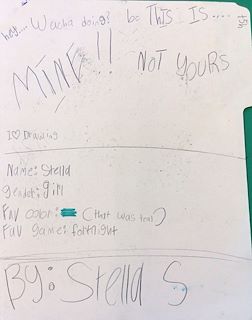 hey.... Wacha doing? bc THIS IS.....
MINE!! NOT YOURS
I ♡ Drawing
Name: Stella
gender: girl
Fav color: (that was teal)
Fav game: fortnight
By: Stella S